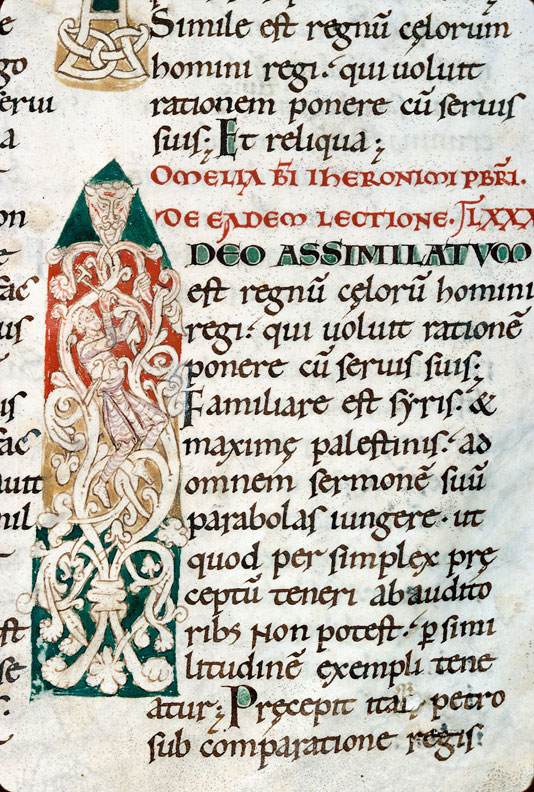 Simile est regnū cęlorum
homini regi. qui uoluit
rationem ponere cū seruis
suis; Et reliqua;
OMELIA BI IHERONIMI PBRI.
DE EADEM LECTIONE. LXXX
IDEO ASSIMILATUM
est regnū cęlorū homini
regi. qui uoluit rationē
ponere cū seruis suis;
Familiare est syris. &
maxime palestinis. ad
omnem sermonē suū
parabolas iungere. ut
quod per simplex prę
ceptū teneri ab audito
ribs non potest. p simi
litudinē exempli tene
atur; Pręcepit itaq petro
sub comparatione regis